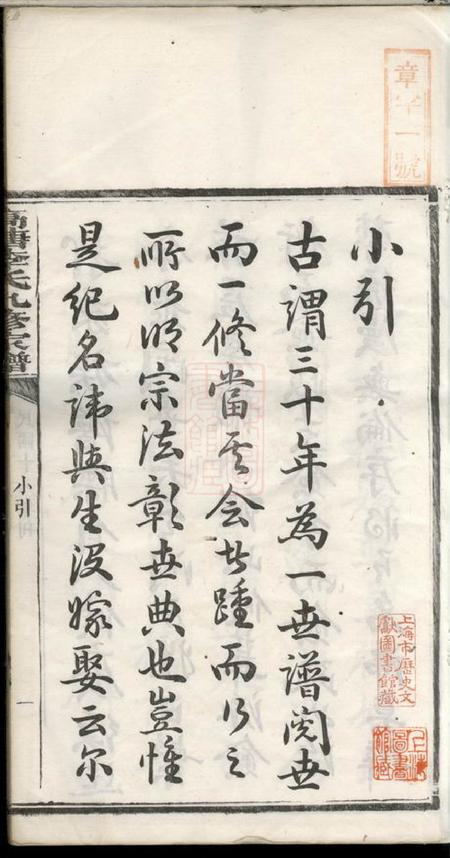 章字一號
小引
古謂三十年為一世譜閱世
而一修當其会者踵而行之
所以明宗法彰世典也豈惟
是紀名諱與生没嫁娶云尔
氏九修家譜
小引
一
上海市歷史文
獻圖書館藏
上海
圖書
館藏